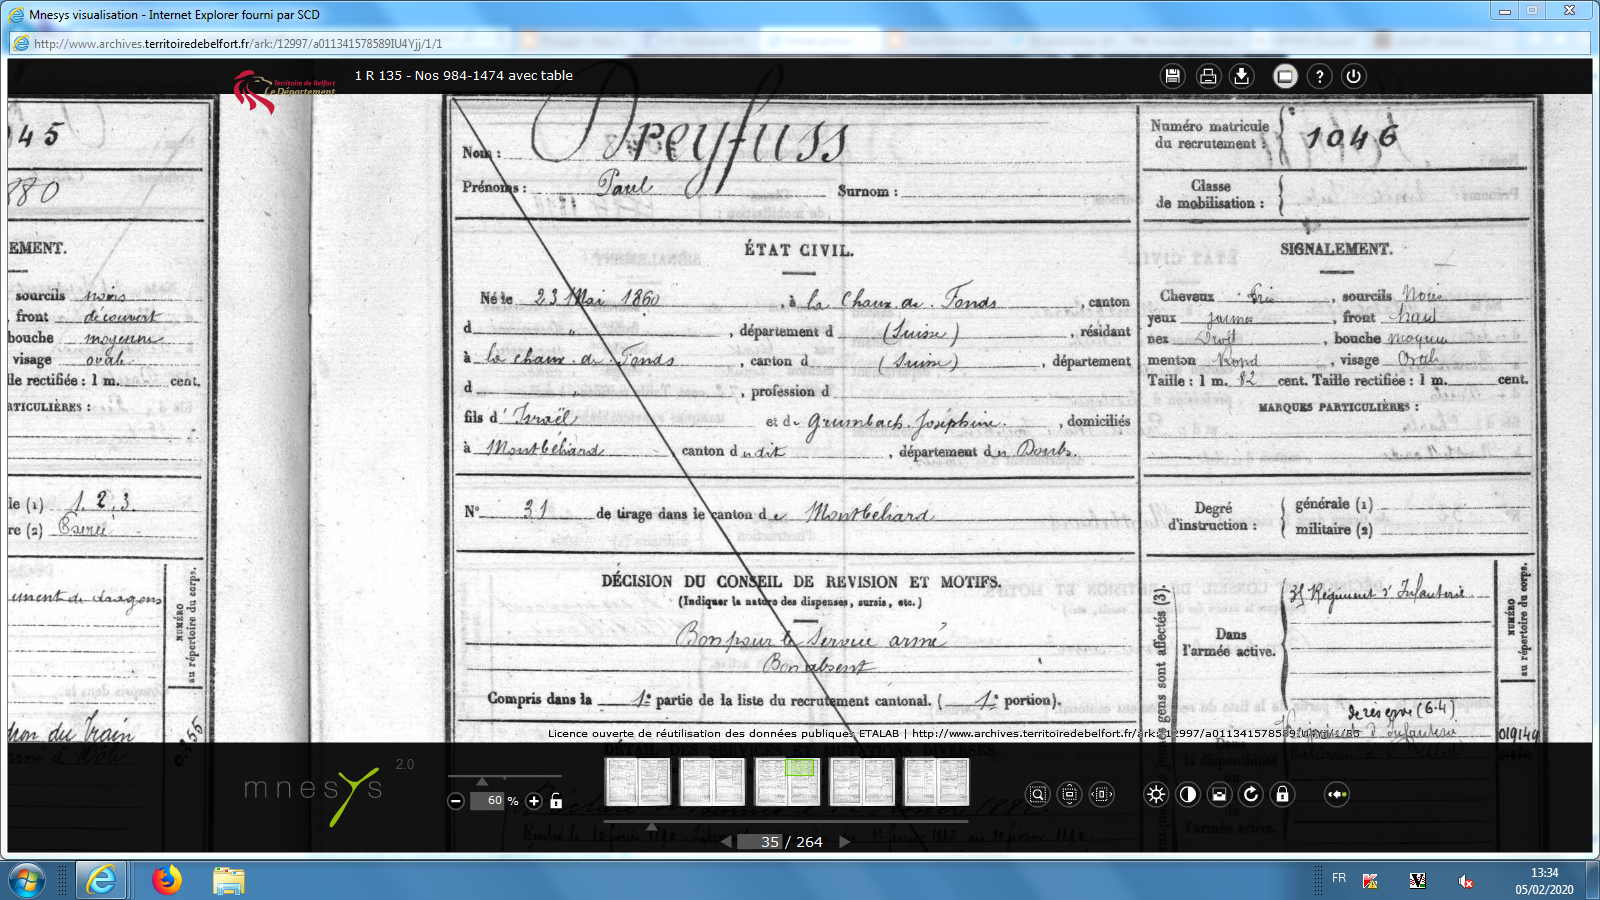 Mnesys visualisation - Internet Explorer fourni par SCD
http://www.archives.territoiredebelfort.fr/ark:/12997/a011341578589IU4Yjj/1/1
Territoire de Belfort
Le Département
1 R 135 - Nos 984-1474 avec table
945
EMENT.
sourcils noirs
front découvert
bouche moyenne
visage ovale
lle rectifiée : 1 m. cent.
RTICULIÈRES :
le (1) 1. 2. 3.
re (2) Exercé
NUMÉRO
au répertoire du corps.
Nom : Dreyfuss
Prénoms : Paul Surnom :
Numéro matricule
du recrutement : 1046
Classe
de mobilisation :
ÉTAT CIVIL.
Né le 23 Mai 1860, à la Chaux-de-Fonds, canton
d " , département d (Suisse), résidant
à la chaux-de-Fonds, canton d (Suisse), département
d " , profession d
fils d'Israël et de Grumbach Joséphine, domiciliés
à Montbéliard, canton dudit, département du Doubs.
N° 31 de tirage dans le canton de Montbéliard
SIGNALEMENT.
Cheveux , sourcils Noirs
yeux , front haut
nez Droit, bouche moyenne
menton Rond, visage Ovale
Taille : 1 m. 82 cent. Taille rectifiée : 1 m. cent.
MARQUES PARTICULIÈRES :
Degré
d'instruction :
générale (1)
militaire (2)
DÉCISION DU CONSEIL DE REVISION ET MOTIFS.
(Indiquer la nature des dispenses, sursis, etc.)
Bon pour le Service armé
Bon absent
Compris dans la 1e partie de la liste du recrutement cantonal. ( 1e portion).
gens sont affectés (3).
Dans
l'armée active.
Régiment d'Infanterie
NUMÉRO
au répertoire du corps.
de réserve (64)
Licence ouverte de réutilisation des données publiques ETALAB | http://www.archives.territoiredebelfort.fr/ark:/12997/a011341578589IU4Yjj/1/35
DÉTAIL DES SERVICES ET MUTATIONS DIVERSES.
mnesys 2.0
60 %
35 / 264
FR
13:34
05/02/2020